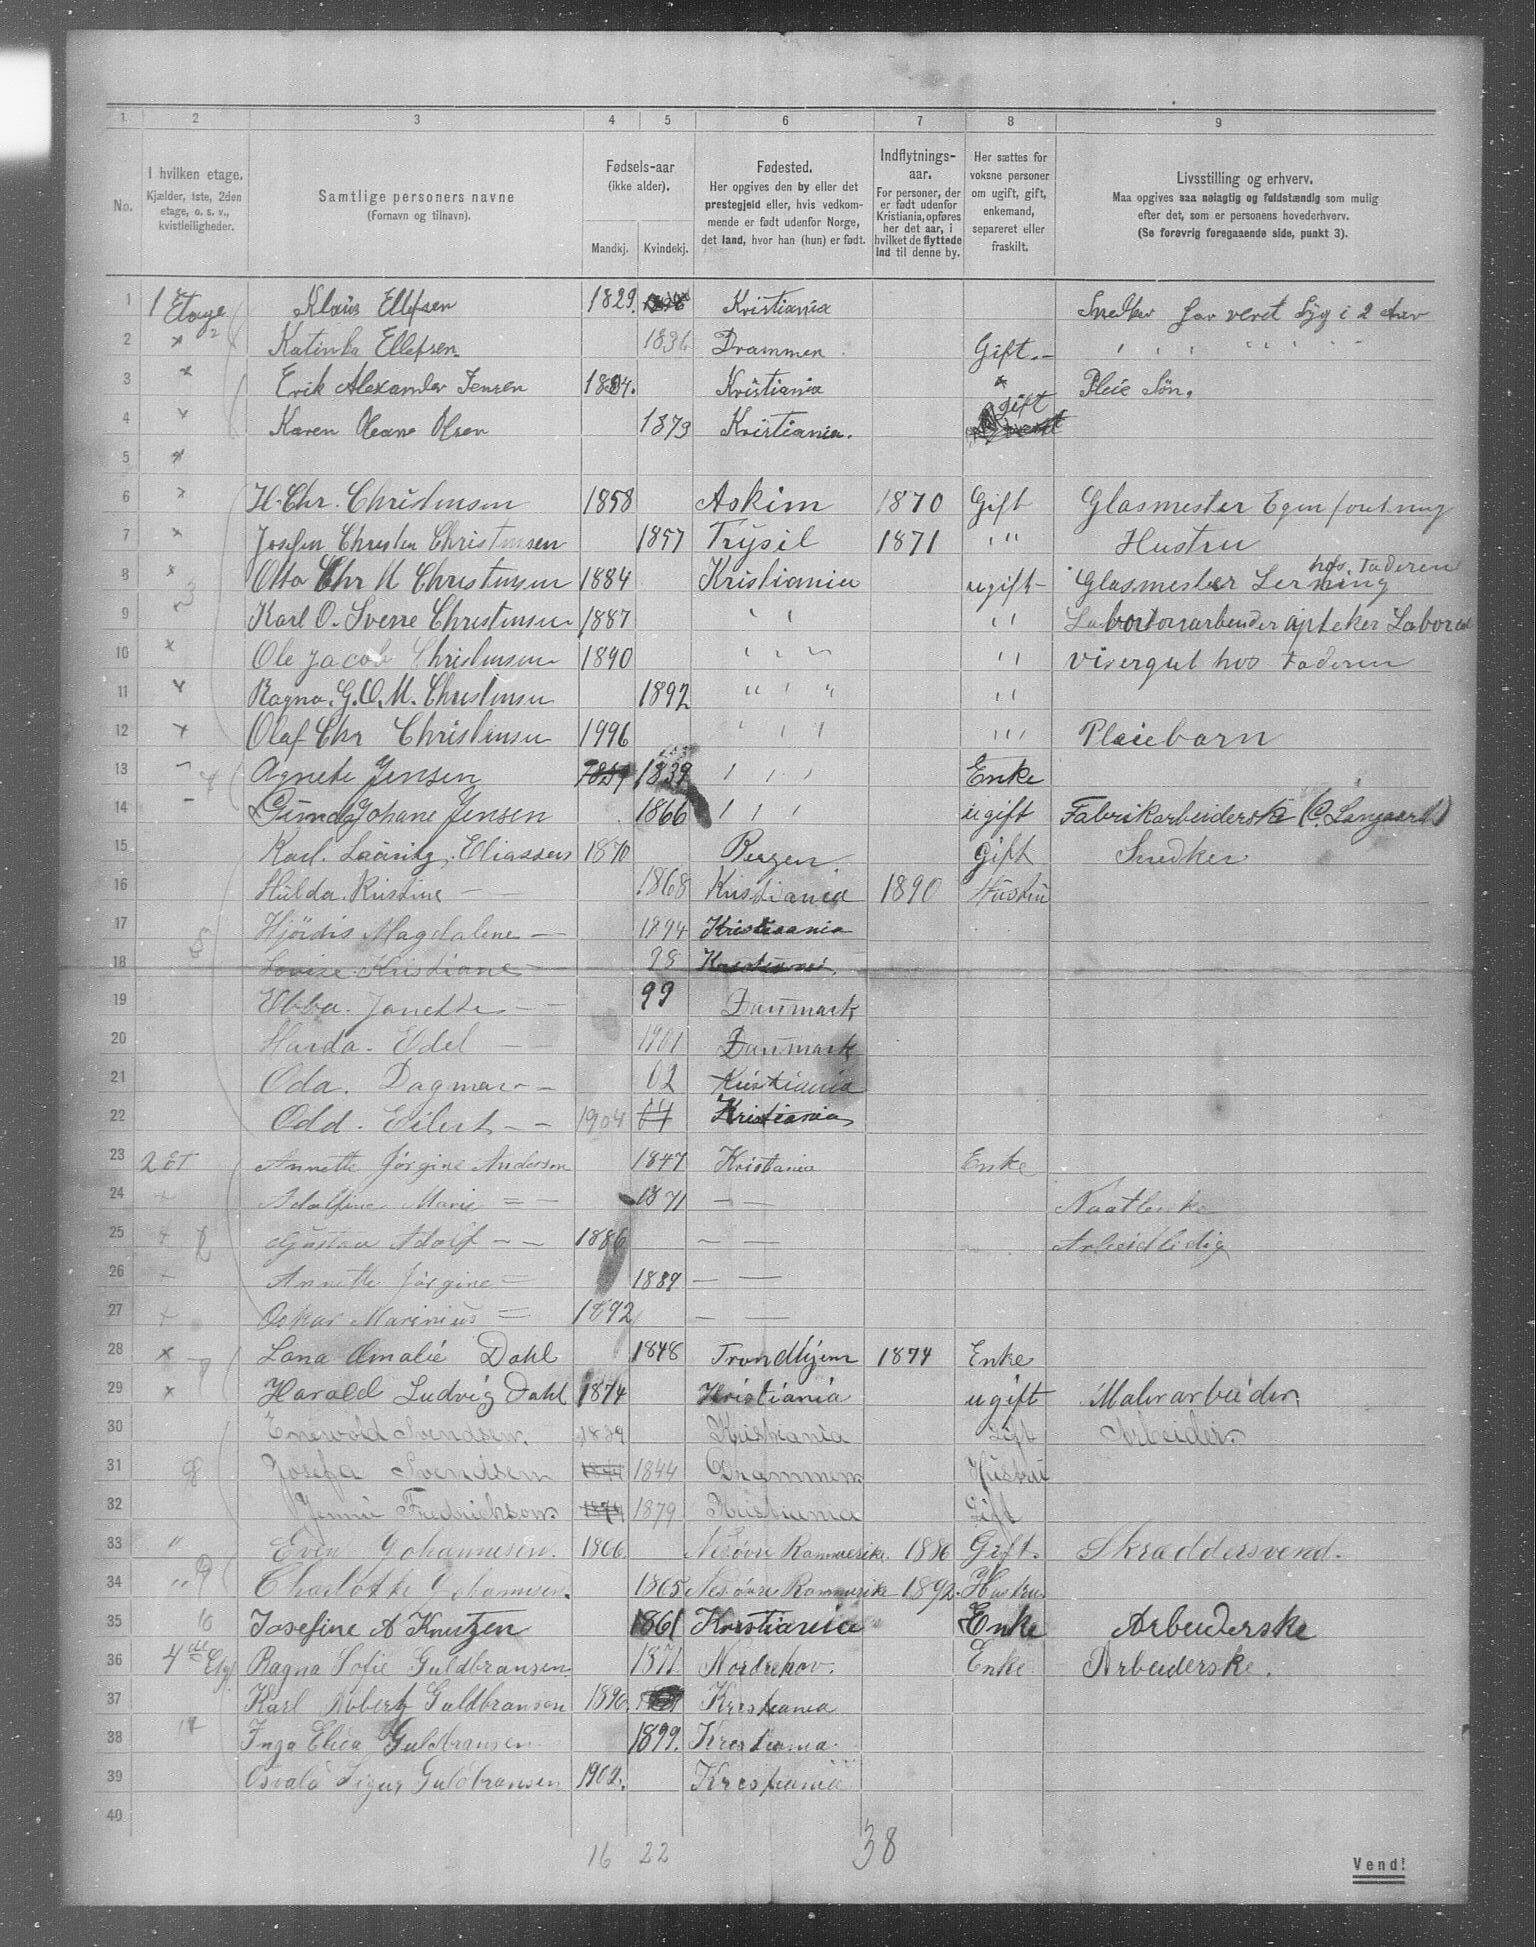 1 2 3 4 5 6 7 8 9
No.
I hvilken etage.
Kjælder, 1ste, 2den
etage, o. s. v.,
kvistleiligheder.
Samtlige personers navne
(Fornavn og tilnavn).
Fødsels-aar
(ikke alder).
Mandkj. Kvindekj.
Fødested.
Her opgives den by eller det
prestegjeld eller, hvis vedkom-
mende er født udenfor Norge,
det land, hvor han (hun) er født.
Indflytnings-
aar.
For personer, der
er født udenfor
Kristiania, opføres
her det aar, i
hvilket de flyttede
ind til denne by.
Her sættes for
voksne personer
om ugift, gift,
enkemand,
separeret eller
fraskilt.
Livsstilling og erhverv.
Maa opgives saa nøiagtig og fuldstændig som mulig
efter det, som er personens hovederhverv.
(Se forøvrig foregaaende side, punkt 3).
1 1 Etage Klaus Ellefsen 1829. Kristiania Snedker har veret Syg i 2 Aar
2 × Katinka Ellefsen 1836 Drammen Gift - " " " " " " "
3 × Erik Alexander Jensen 1894. Kristiania " Pleie Søn.
4 × Karen Oleane Olsen 1873 Kristiania. gift
5 ×
6 × H. Chr. Christensen 1858 Askim 1870 Gift Glasmester Egen foretning
7 × Josefin Christen Christensen 1857 Trysil 1871 " " Hustru
8 × Otto Chr M Christensen 1884 Kristiania ugift Glasmester Lerning hos Faderen
9 Karl O. Sverre Christensen 1887 " " " "
10 × Ole Jacob Christensen 1890 " " " " " Visergut hos Faderen
11 × Ragna. G. O. M. Christensen 1892 " " " " "
12 × Olaf Chr Christensen 1996 " " " " " " Pleiebarn
13 - Agnete Jensen 1839 " " " Enke
14 - Johane Jensen 1866 " " " ugift Fabrikarbeiderske (C. Langaard)
15 Karl. Lauritz. Eliassen 1870 Bergen Gift Snedker
16 Hulda. Kristine — — 1868 Kristiania 1890 Hustru
17 Hjördis Magdalene — 1894 Kristiania
18 Lovise Kristiane — 98 Kristiania
19 Ebba. Janette — — 99 Danmark
20 Harda. Edel — 1901 Danmark
21 Oda. Dagmar — — 02 Kristiania
22 Odd. Eilert — — 1904 Kristiania
23 2 Et Annette Jørgine Andersen 1847 Kristiania Enke
24 + Adolfine Marie = — 1871 — —
25 + Gustav Adolf — — 1886 — — Arbeidledig
26 - Annette Jørgine = 1889 — —
27 + Oskar Marinius = 1892 — —
28 × Lana Amalie Dahl 1848 Trondhjem 1874 Enke
29 × Harald Ludvig Dahl 1874 Kristiania ugift Malerarbeider.
30 Enevold Svendsen. 1839 Kristiania Gift Arbeider.
31 8 Josefa Svendsen 1844 Drammen. Hustru
32 Jenni Fredrichson. 1879 Kristiania Gift
33 " Even Johannesen. 1866 Nes øvre Romerike. 1886 Gift. Skræddersvend.
34 " 9 Charlotte Johannesen. 1865 Nes øvre Romerike 1892. Hustru
35 10 Josefine A Knutzen 1861 Kristiania Enke Arbeiderske
36 4de Etg Ragna Sofie Guldbransen 1871. Norderhov. Enke Arbeiderske.
37 Karl Robert Guldbransen 1896. Kristiania
38 Inga Elisa Guldbransen 1899. Kristiania.
39 Osvald Sigur Guldbransen 1902. Kristiania
40
16 22 38
Vend!